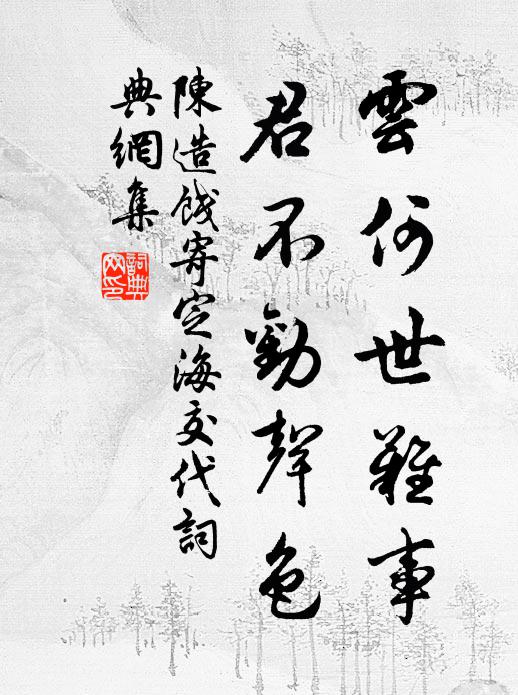 雲何世難事
君不動聲色
陳造餞寄定海交代詞
典網集
詞典
网印